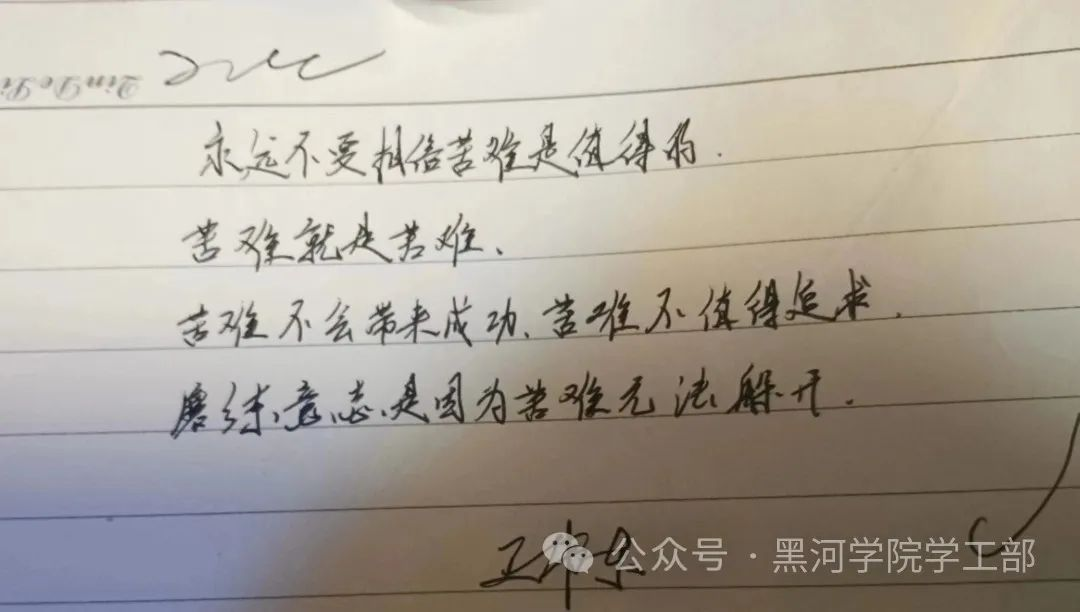 永远不要相信苦难是值得的.
苦难就是苦难、
苦难不会带来成功、苦难不值得追求.
磨练意志是因为苦难无法躲开.
公众号·黑河学院学工部